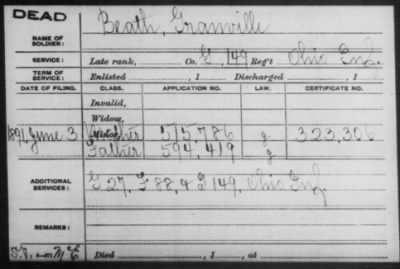 DEAD
NAME OF SOLDIER: Beath, Granville
SERVICE: Late rank, Co. G, 149 Reg't Ohio Inf.
TERM OF SERVICE: Enlisted , 1 Discharged , 1
DATE OF FILING. CLASS. APPLICATION NO. LAW. CERTIFICATE NO.
Invalid,
Widow,
1891, June 3 Mother 575,786 g 323,306
Father 594,419 g
ADDITIONAL SERVICES: G 27, F 88, & G 149, Ohio Inf.
REMARKS:
Died , 1 , at